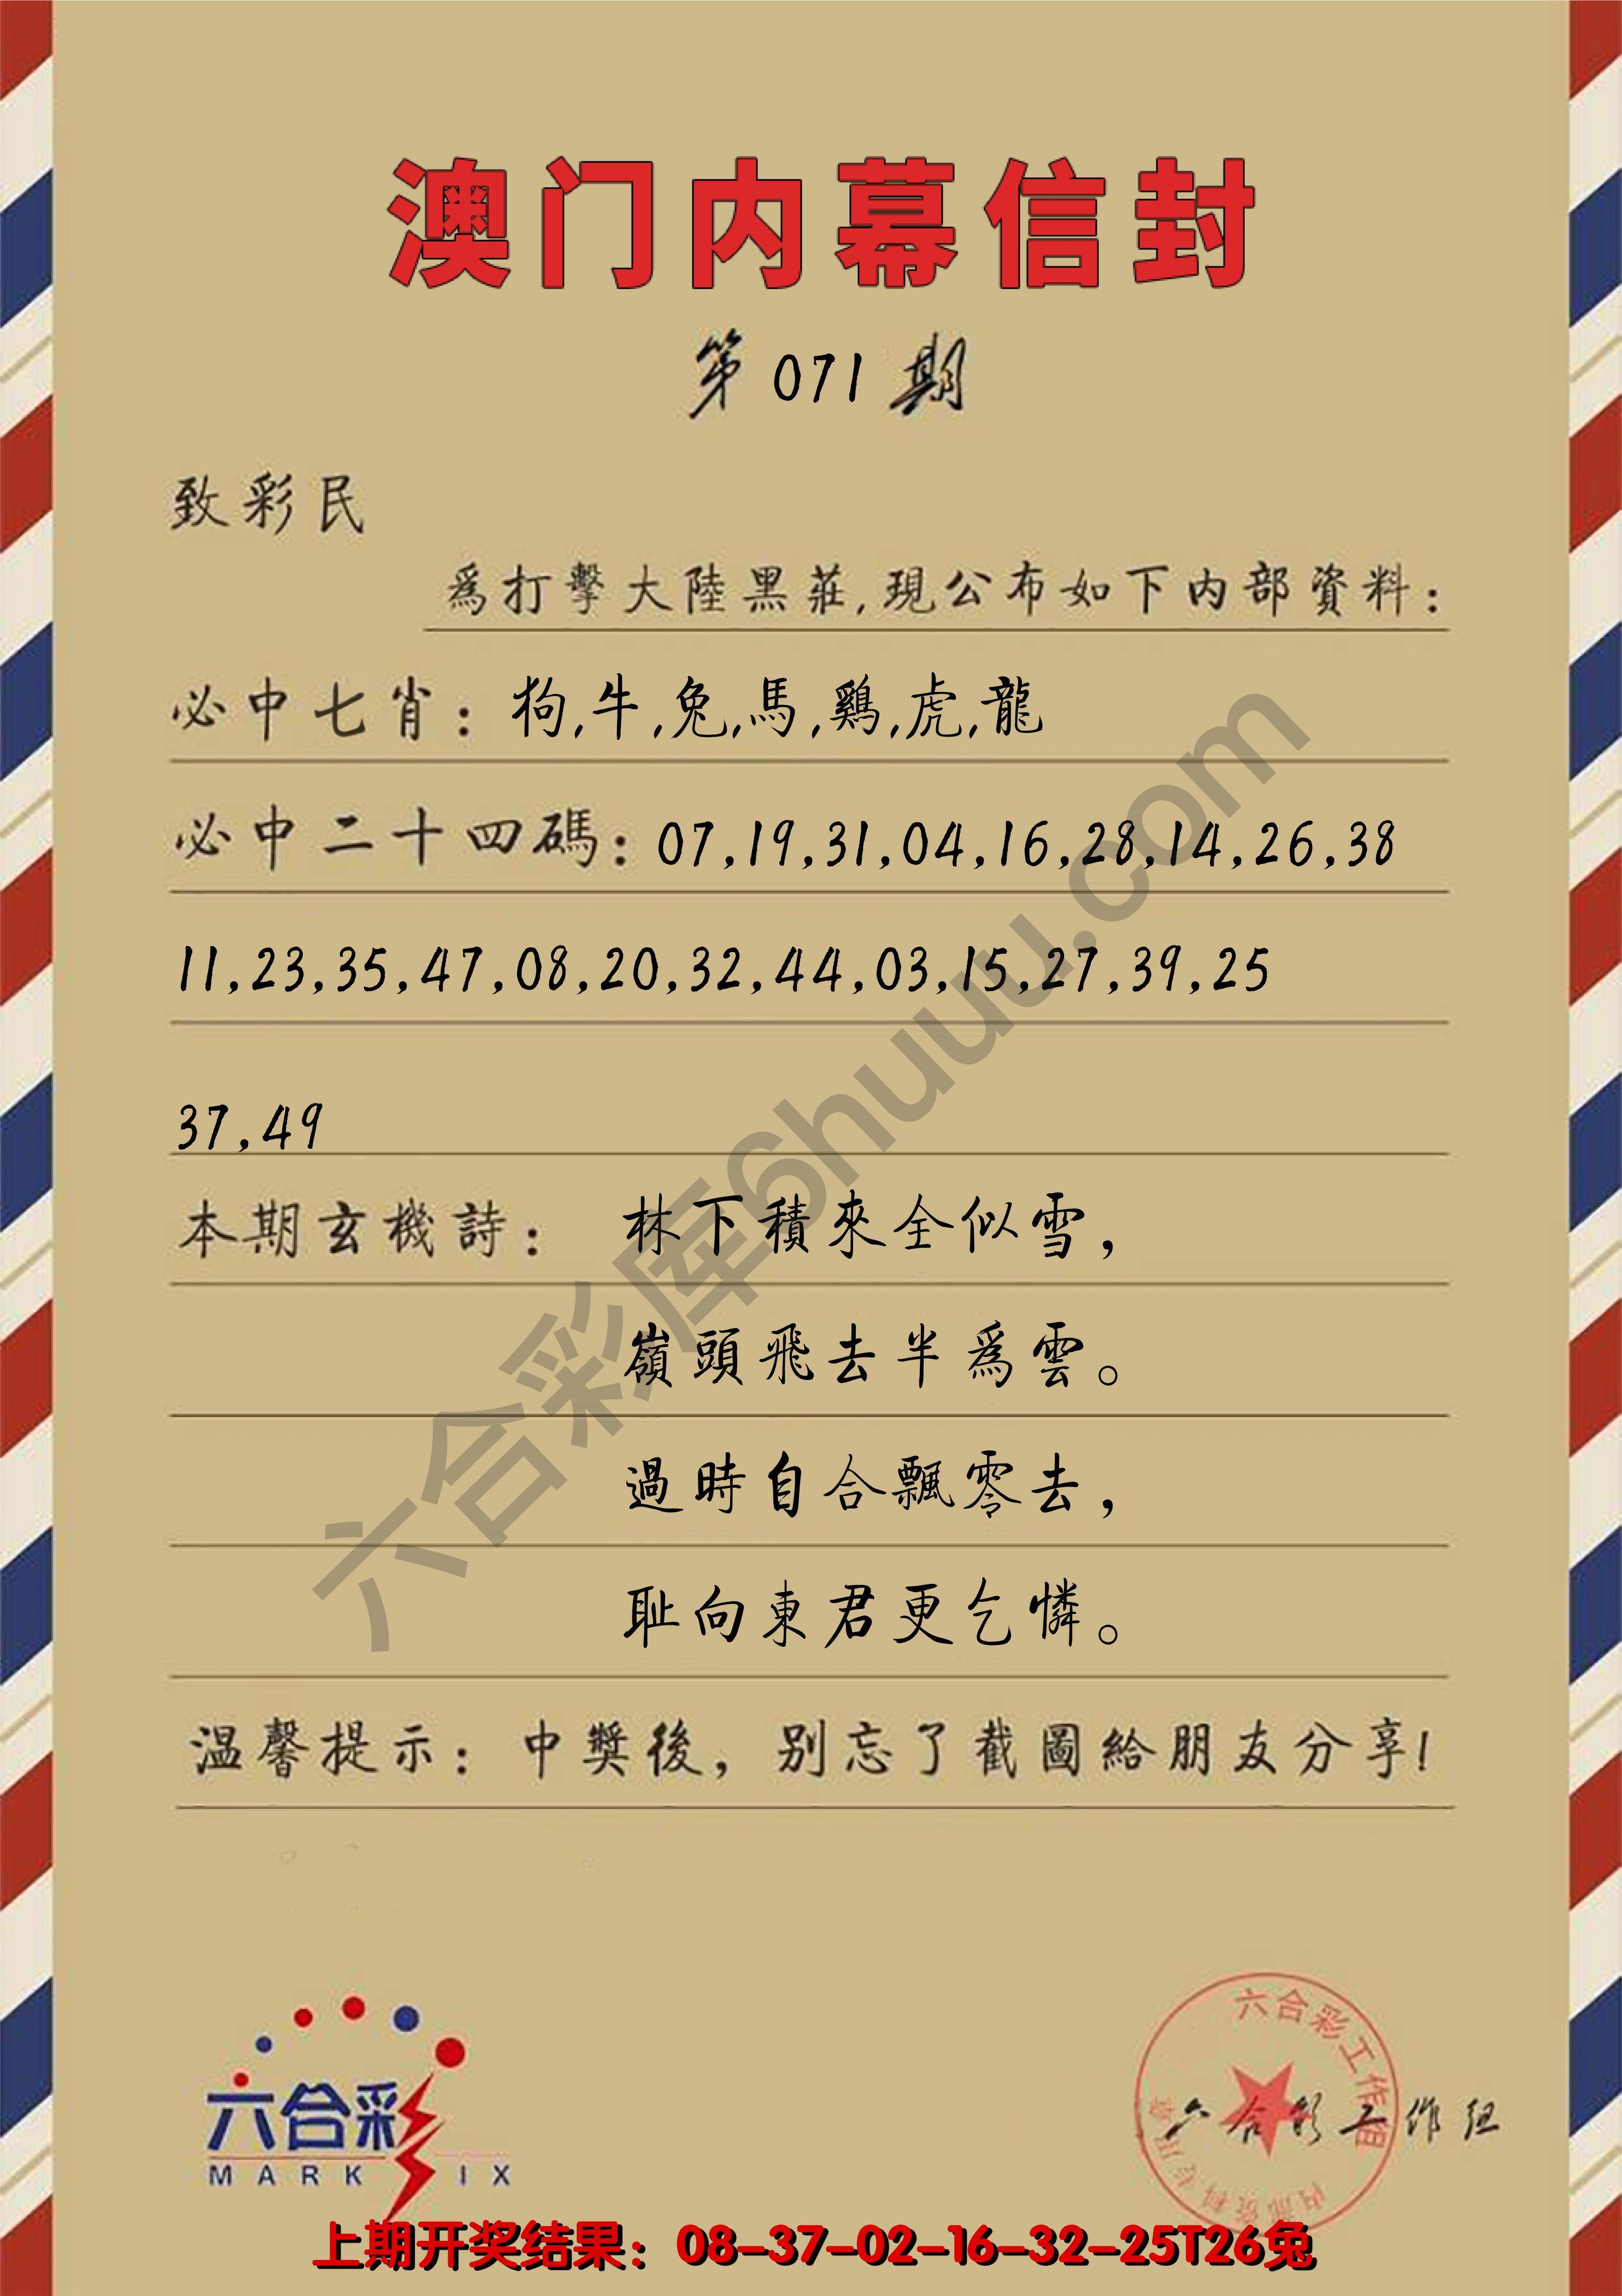 澳门内幕信封
第071期
致彩民
爲打擊大陸黑莊,現公布如下内部資料:
必中七肖:狗,牛,兔,馬,鷄,虎,龍
必中二十四碼:07,19,31,04,16,28,14,26,38
11,23,35,47,08,20,32,44,03,15,27,39,25
37,49
本期玄機詩: 林下積來全似雪,
嶺頭飛去半爲雲。
過時自合飄零去,
耻向東君更乞憐。
温馨提示:中獎後,别忘了截圖給朋友分享!
六合彩库6huuu.com
六合彩
MARK SIX
六合彩工作组
内部资料专用章
六合彩工作组
上期开奖结果:08-37-02-16-32-25T26兔